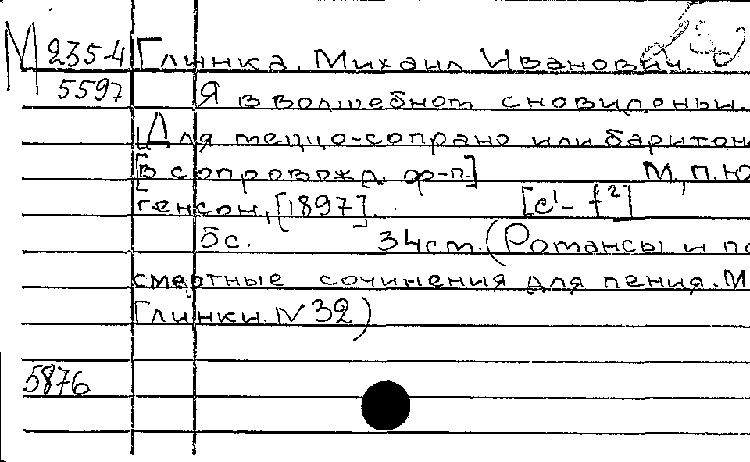 М 235-4 Глинка, Михаил Иванович.
5597 Я в волшебном сновиденьи.
Для меццо-сопрано или баритон
[в сопровожд. ф-п.] М., П. Ю
генсон, [1897]. [c¹-f²]
5с. 34см. (Романсы и по
смертные сочинения для пения. М
Глинки. N 32)
5876